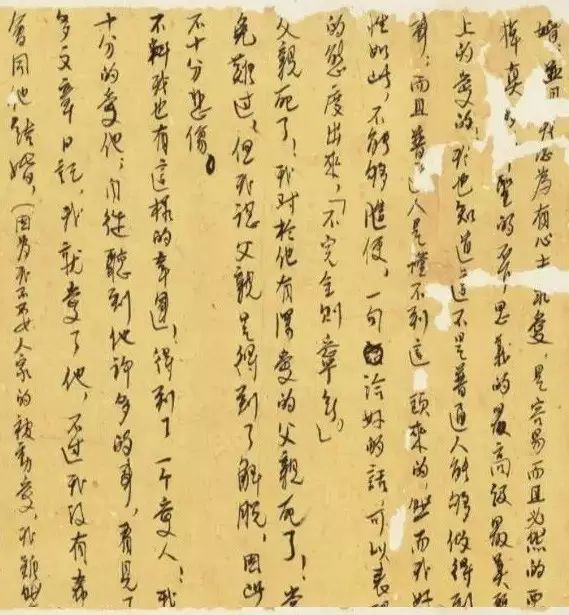 為有心士求愛，是容易而且必然的而
真 聖的不 思義的最高級最美
上的愛的！我也知道這不是普通人能夠做得到
事；而且普 人是懂不到這頭來的，然而我好
性如此，不能夠隨便，一句恰好的話可以表現
的態度出來，「不完全則寧無，」
父親死了！我對於他有深愛的父親死了！當
免難過，但我認父親是得到了解脫，因此
不十分悲傷。
不料我也有這樣的幸運！得到了一个愛人！我
十分的愛他；自從聽到他許多的事，看見了
多文章日記，我就愛了他，不过我沒有希
會同他結婚，（因為我不要人家的被動愛，我雖然